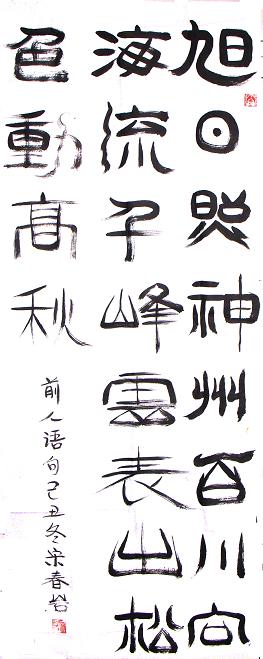 旭日照神州百川向
海流千峰雲表出松
色動高秋
前人语句己丑冬宋春岩